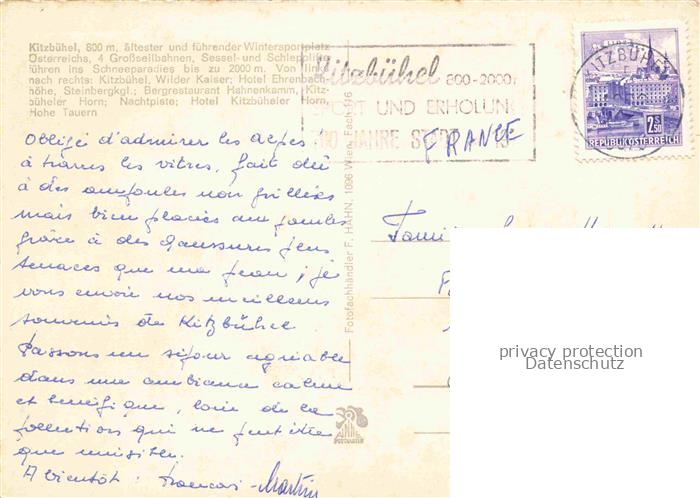 Kitzbühel, 800 m, ältester und führender Wintersportplatz
Österreichs, 4 Großseilbahnen, Sessel- und Schlepplifte
führen ins Schneeparadies bis zu 2000 m. Von
nach rechts: Kitzbühel, Wilder Kaiser; Hotel Ehrenbach-
höhe, Steinbergkgl.; Bergrestaurant Hahnenkamm, Kitz-
büheler Horn; Nachtpiste; Hotel Kitzbüheler Horn,
Hohe Tauern
Kitzbühel 800-2000
SPORT UND ERHOLUNG
JAHRE
KITZBÜHEL
2.50
REPUBLIK ÖSTERREICH
FRANCE
Obligé d'admirer les alpes
à travers les vitres, fait dû
à des ampoules non grillées
mais bien placées aux jambes
grâce à des chaussures plus
tenaces que ma peau, je
vous envoie nos meilleurs
souvenirs de Kitzbühel
Passons un séjour agréable
dans une ambiance calme
et bénéfique, loin de la
pollution qui ne peut être
que nuisible.
A bientôt: François - Martin
Fotofachhändler F. HAHN, 1096 Wien, Fach 116
POSTKARTEN
privacy protection
Datenschutz